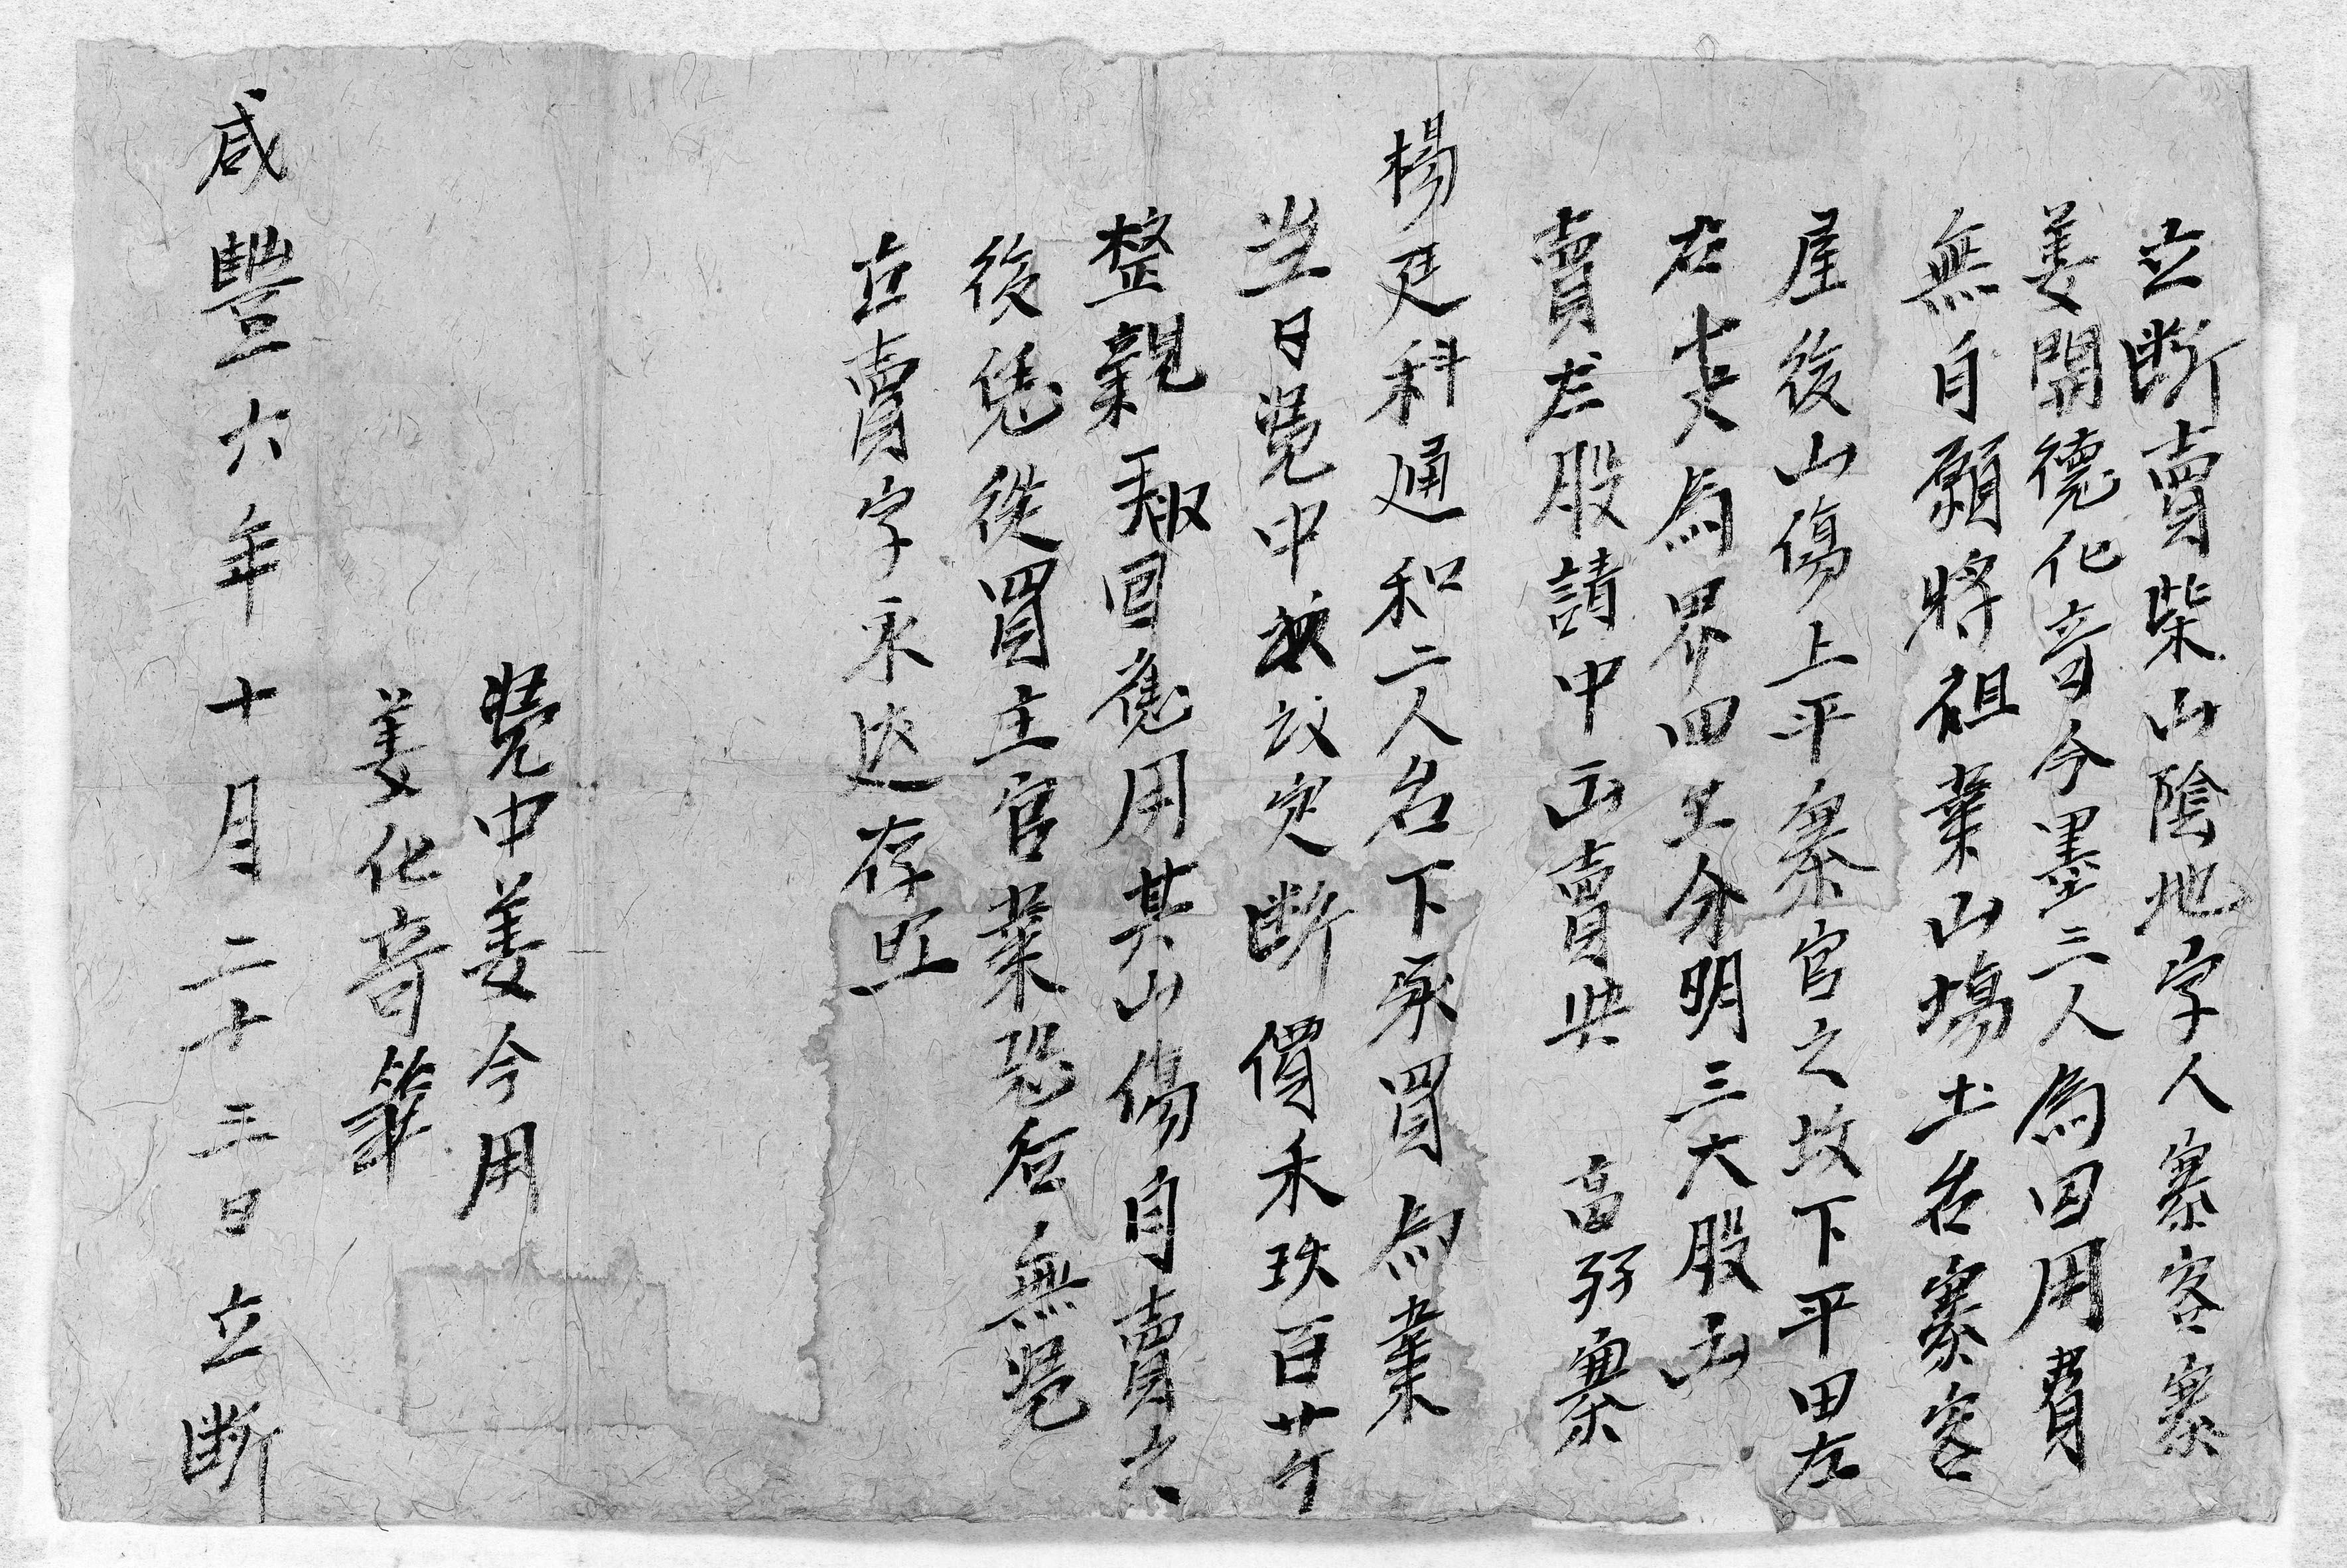 立断賣柴山陰地字人寨客寨
姜開德化音今墨三人為因用費
無自願将祖業山塲土名寨客
屋後山傷上平寨官之坟下平田左
右丈為界四至分明三大股出
賣左股請中出賣與 高弱寨
楊廷科通和二人名下承買為業
当日凭中議定断價禾玖百廿斤
整親手収回應用其山傷自賣之
後凭從買主官業恐后無凭
立賣字永遠存照
凭中姜今用
姜化音筆
咸豐六年十月二十三日立断